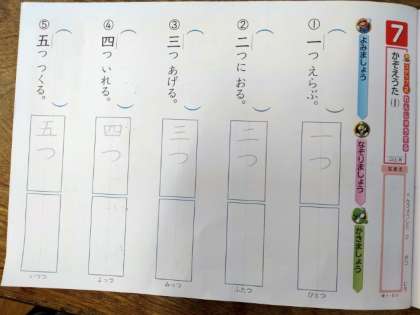 7
かぞえうた(1)
よみましょう
なぞりましょう
かきましょう
① 一つ えらぶ。
一つ
ひとつ
② 二つに おる。
二つ
ふたつ
③ 三つ あげる。
三つ
みっつ
④ 四つ いれる。
四つ
よっつ
⑤ 五つ つくる。
五つ
いつつ